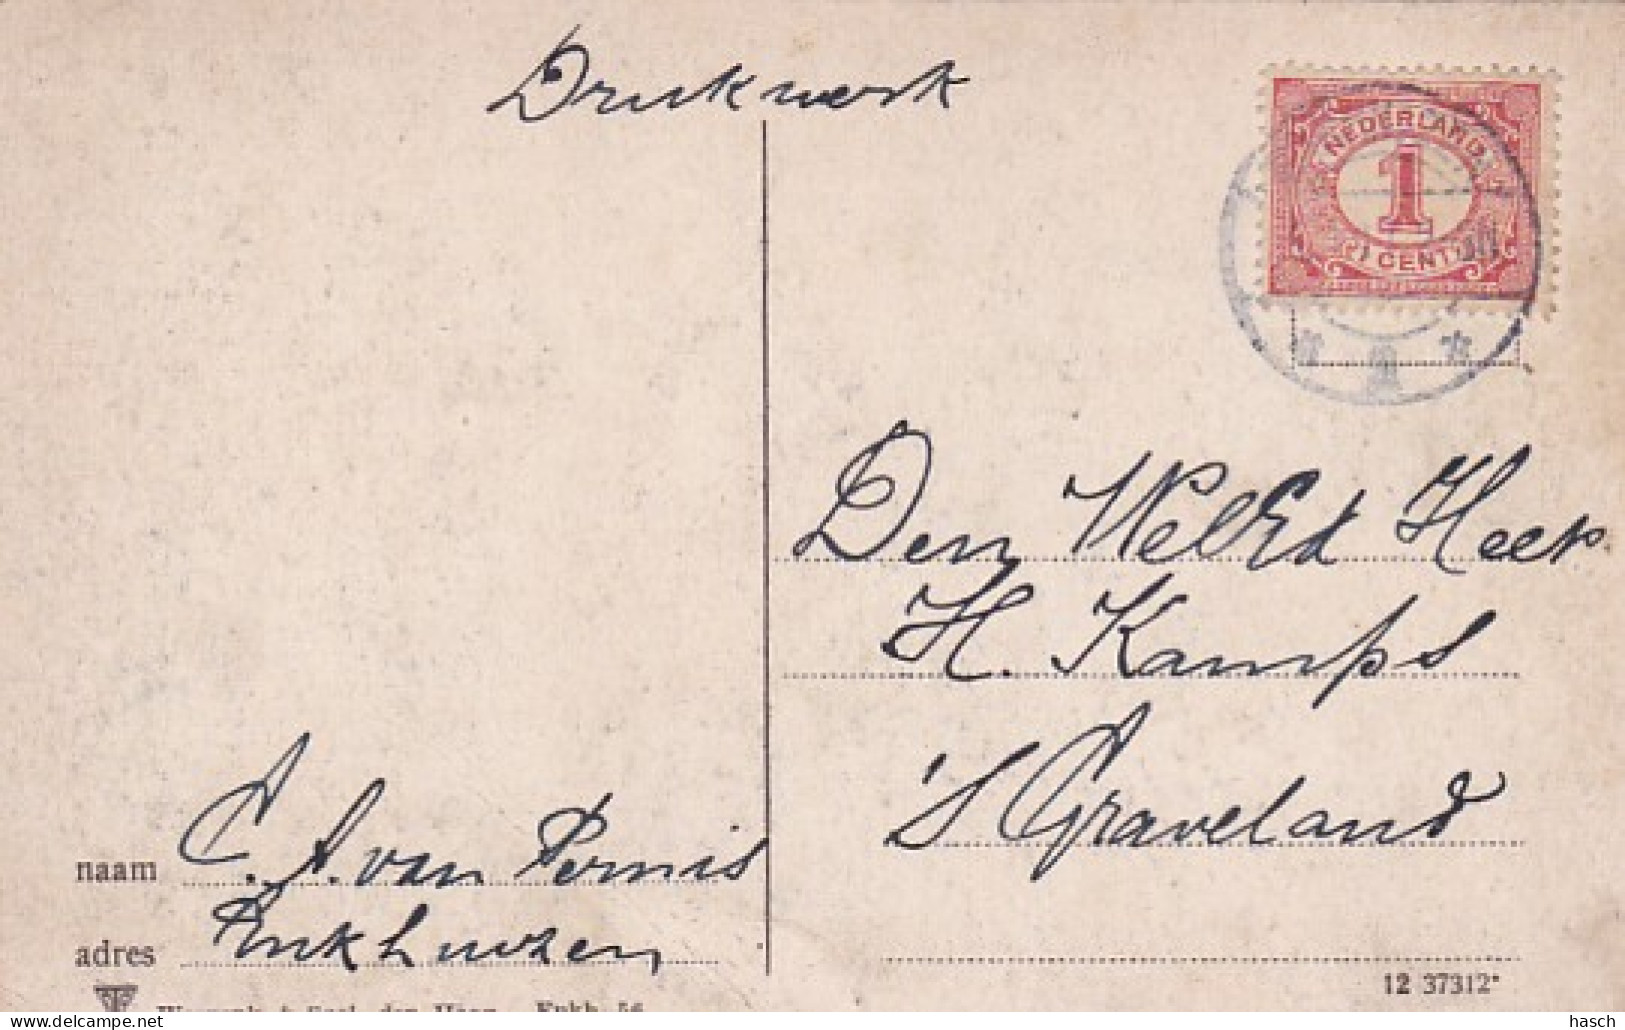 Drukwerk
NEDERLAND
1
CENT
Den WelEd Heer
H. Kamps
's Graveland
naam C. A. van Pernis
adres Enkhuizen
12 37312*
den Haag Enkh 56
© delcampe.net
hasch